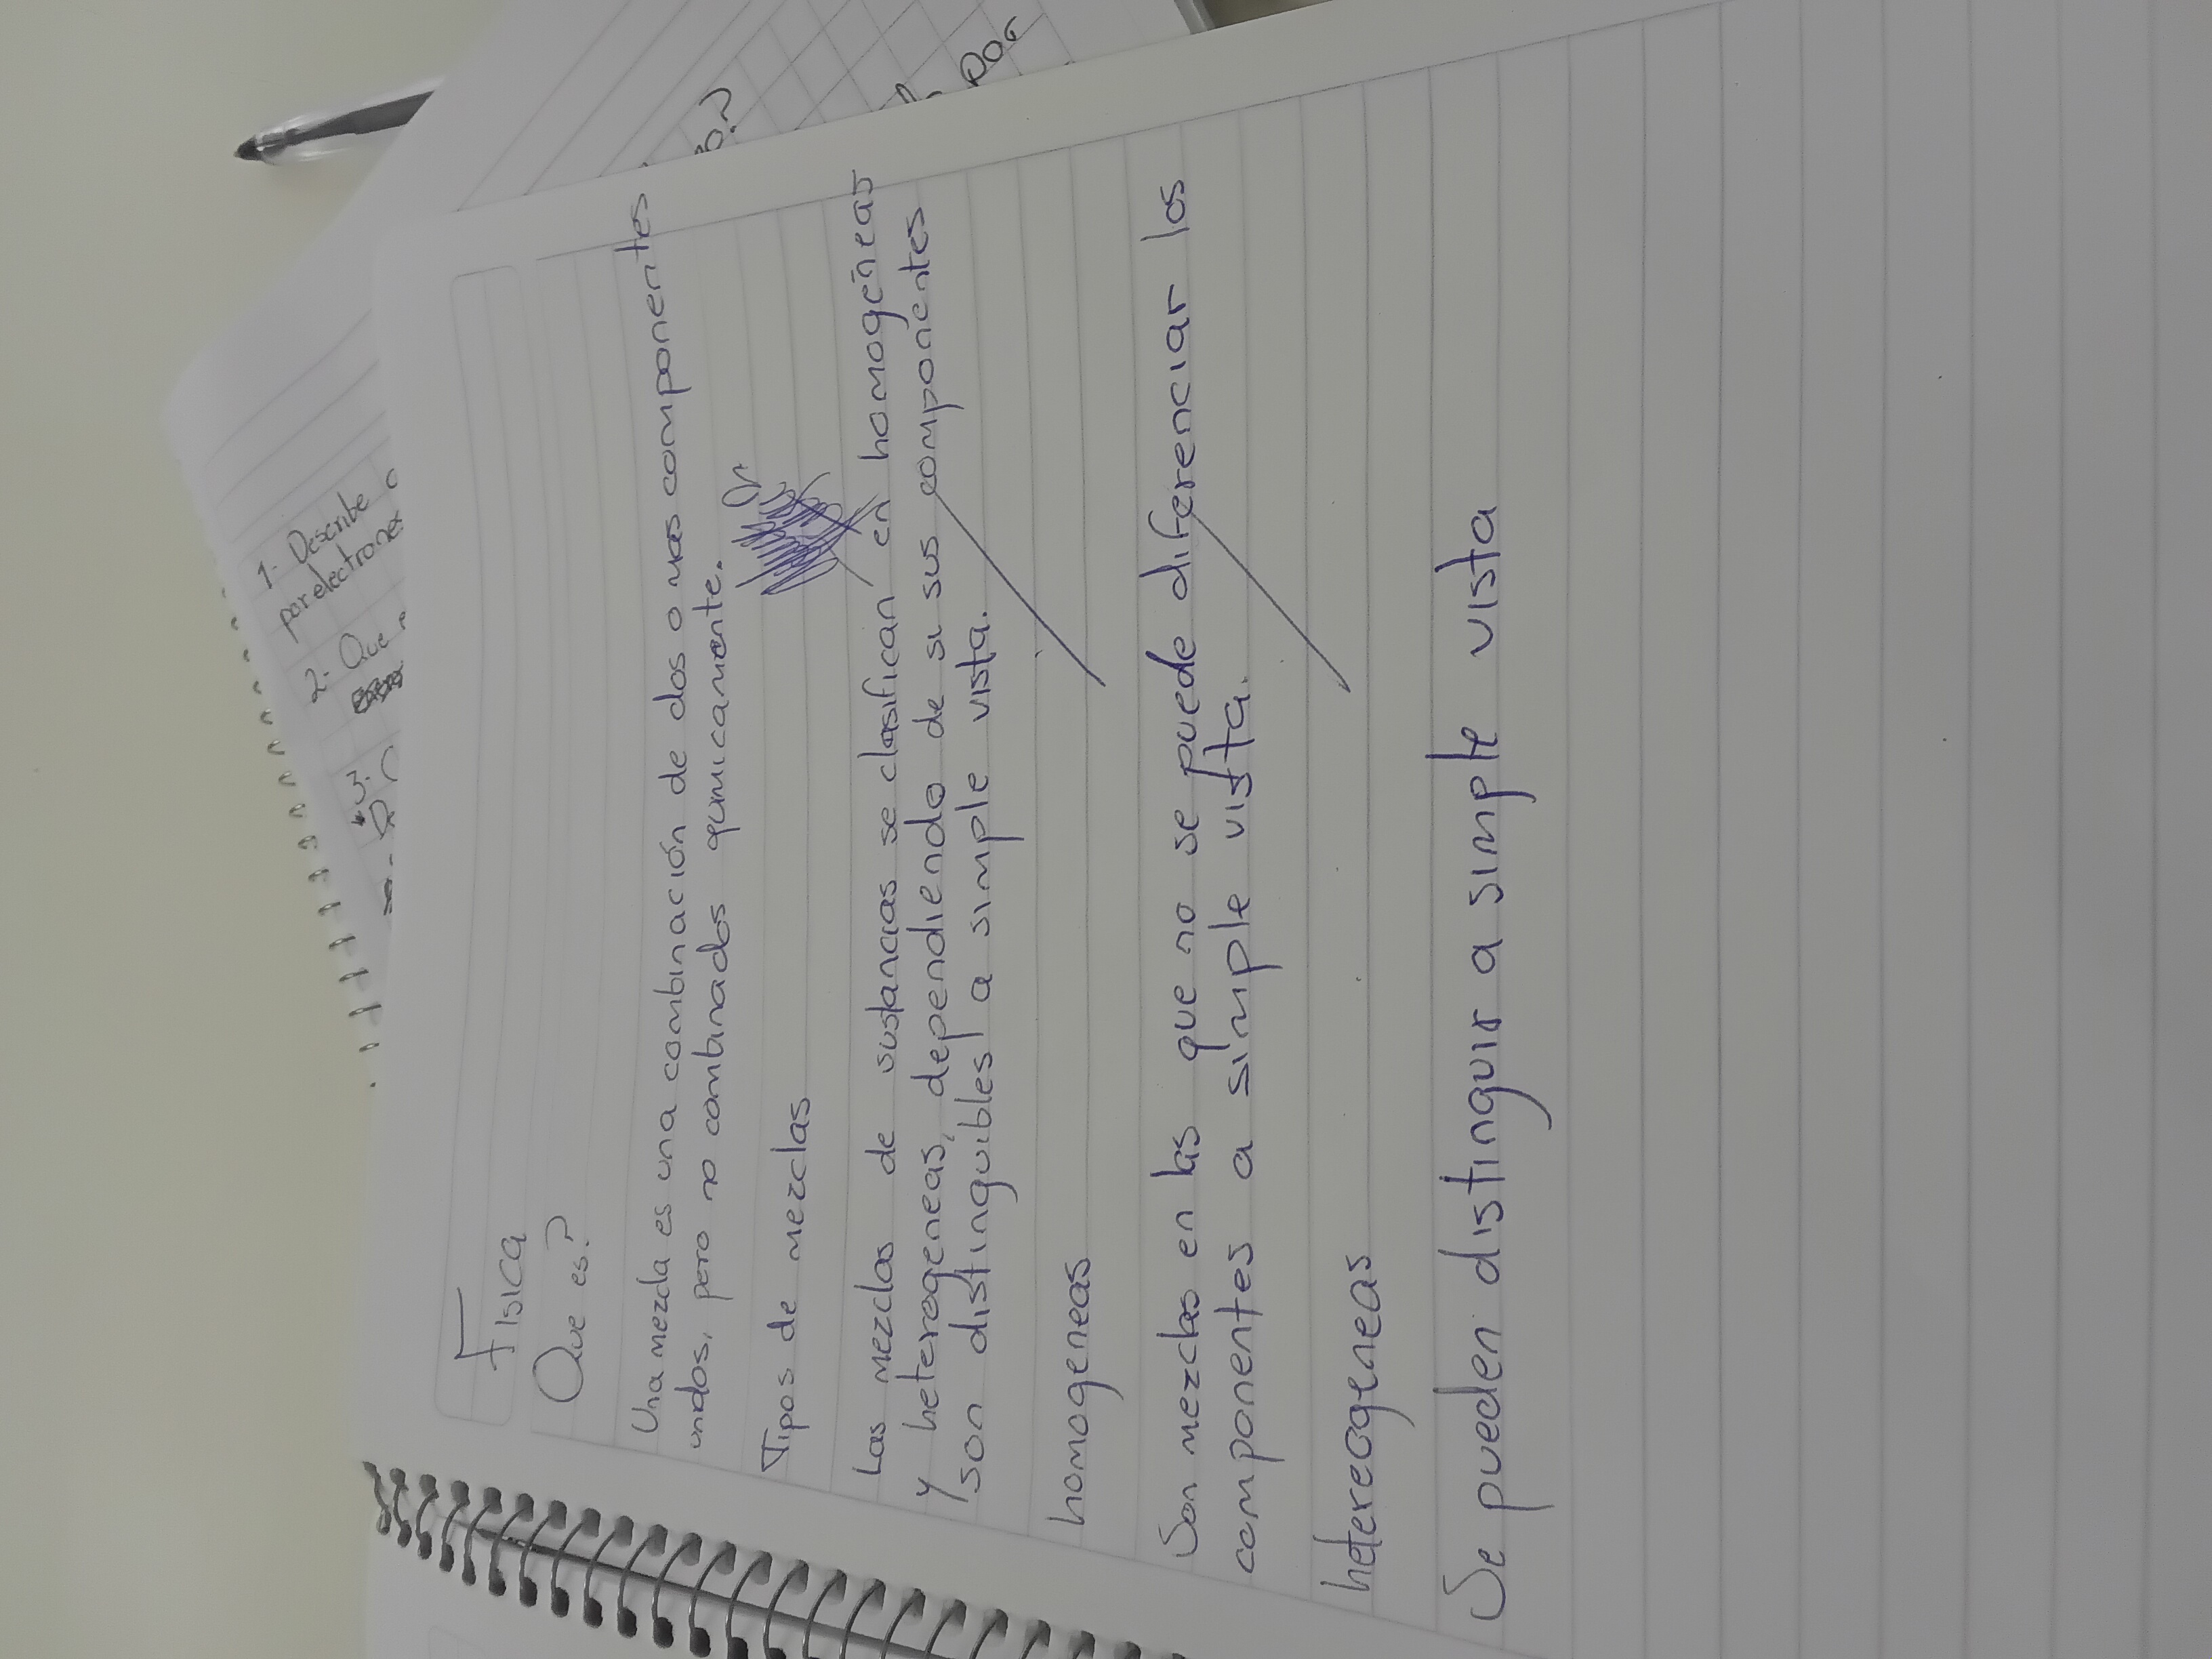 Fisica
Que es?
Una mezcla es una combinación de dos o mas componentes
unidos, pero no combinados quimicamente.
Tipos de mezclas
Las mezclas de sustancias se clasifican en homogéneas
y heterogeneas, dependiendo de si sus componentes
son distinguibles a simple vista.
homogeneas
Son mezclas en las que no se puede diferenciar los
componentes a simple vista.
hetereogeneas
Se pueden distinguir a simple vista
1- Describe
por electrones
2- Que
3-
por